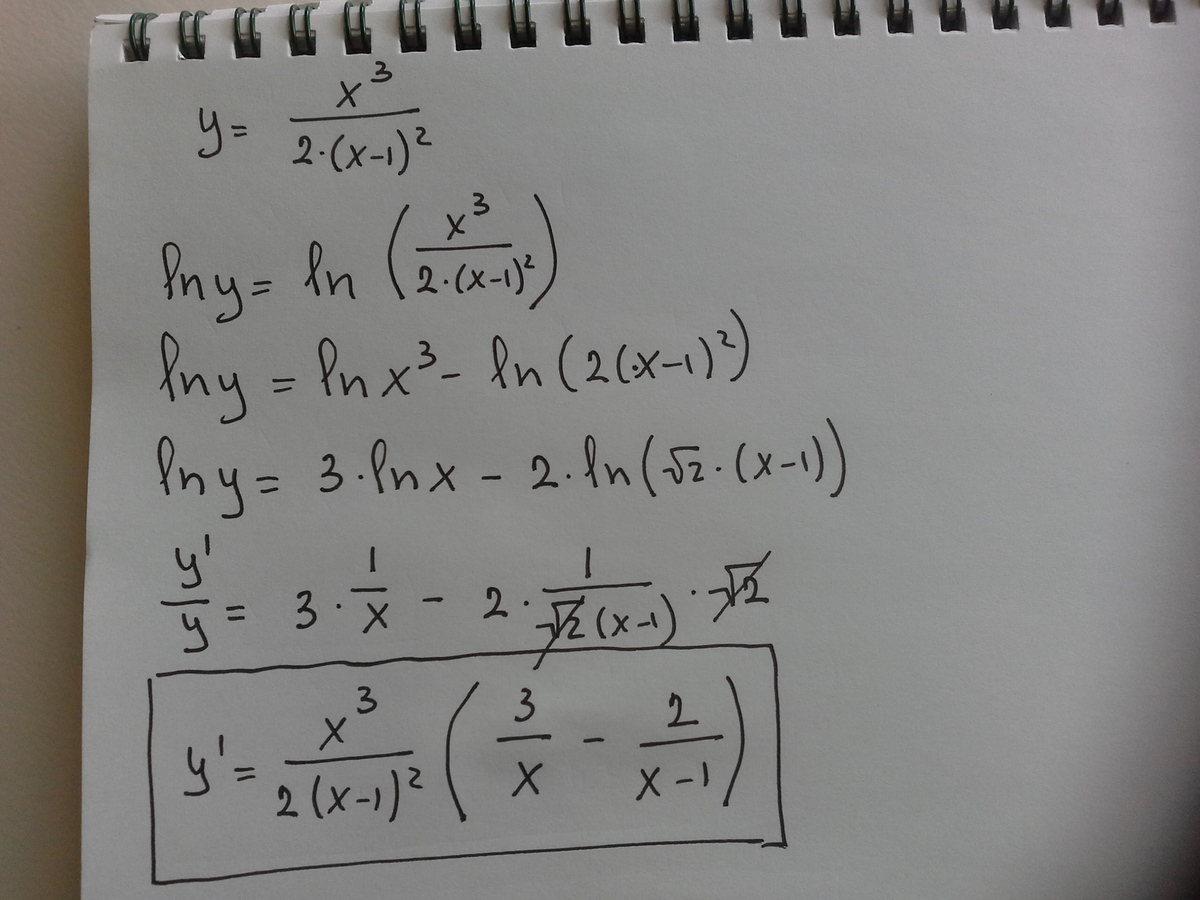 y = x³ / 2·(x-1)²
ln y = ln (x³ / 2·(x-1)²)
ln y = ln x³ - ln (2(x-1)²)
ln y = 3·ln x - 2·ln(√2·(x-1))
y'/y = 3·1/x - 2·1/√2(x-1)·√2
y' = x³ / 2(x-1)² (3/x - 2/x-1)